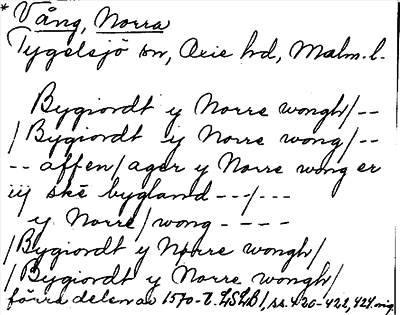 * Vång, Norra
Tygelsjö sn, Oxie hd, Malm. l.
Bygiordt y Norre wongh/--
/Bygiordt y Norre wong/--
-- affen/ager y Norre wong er
iij ske bygland ---/---
y Norre/wong ----
/Bygiordt y Norre wongh/
/Bygiordt y Norre wongh/
förra delen av 1570-t. LSLB1, ss. 420-422, 424.